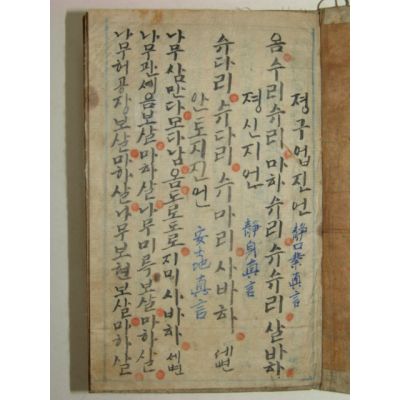 졍구업진언 靜口業真言
옴 수리슈리 마하 슈리 슈슈리 살바하
졍신지언 靜身真言
슈다리 슈다리 슈마리 사바하 세변
안토지진언 安土地真言
나무 삼만다 모다남 옴 도로도로 지메 사바하 세변
나무관셰음보살마하살 나무미륵보살마하살
나무허공장보살마하살 나무보현보살마하살